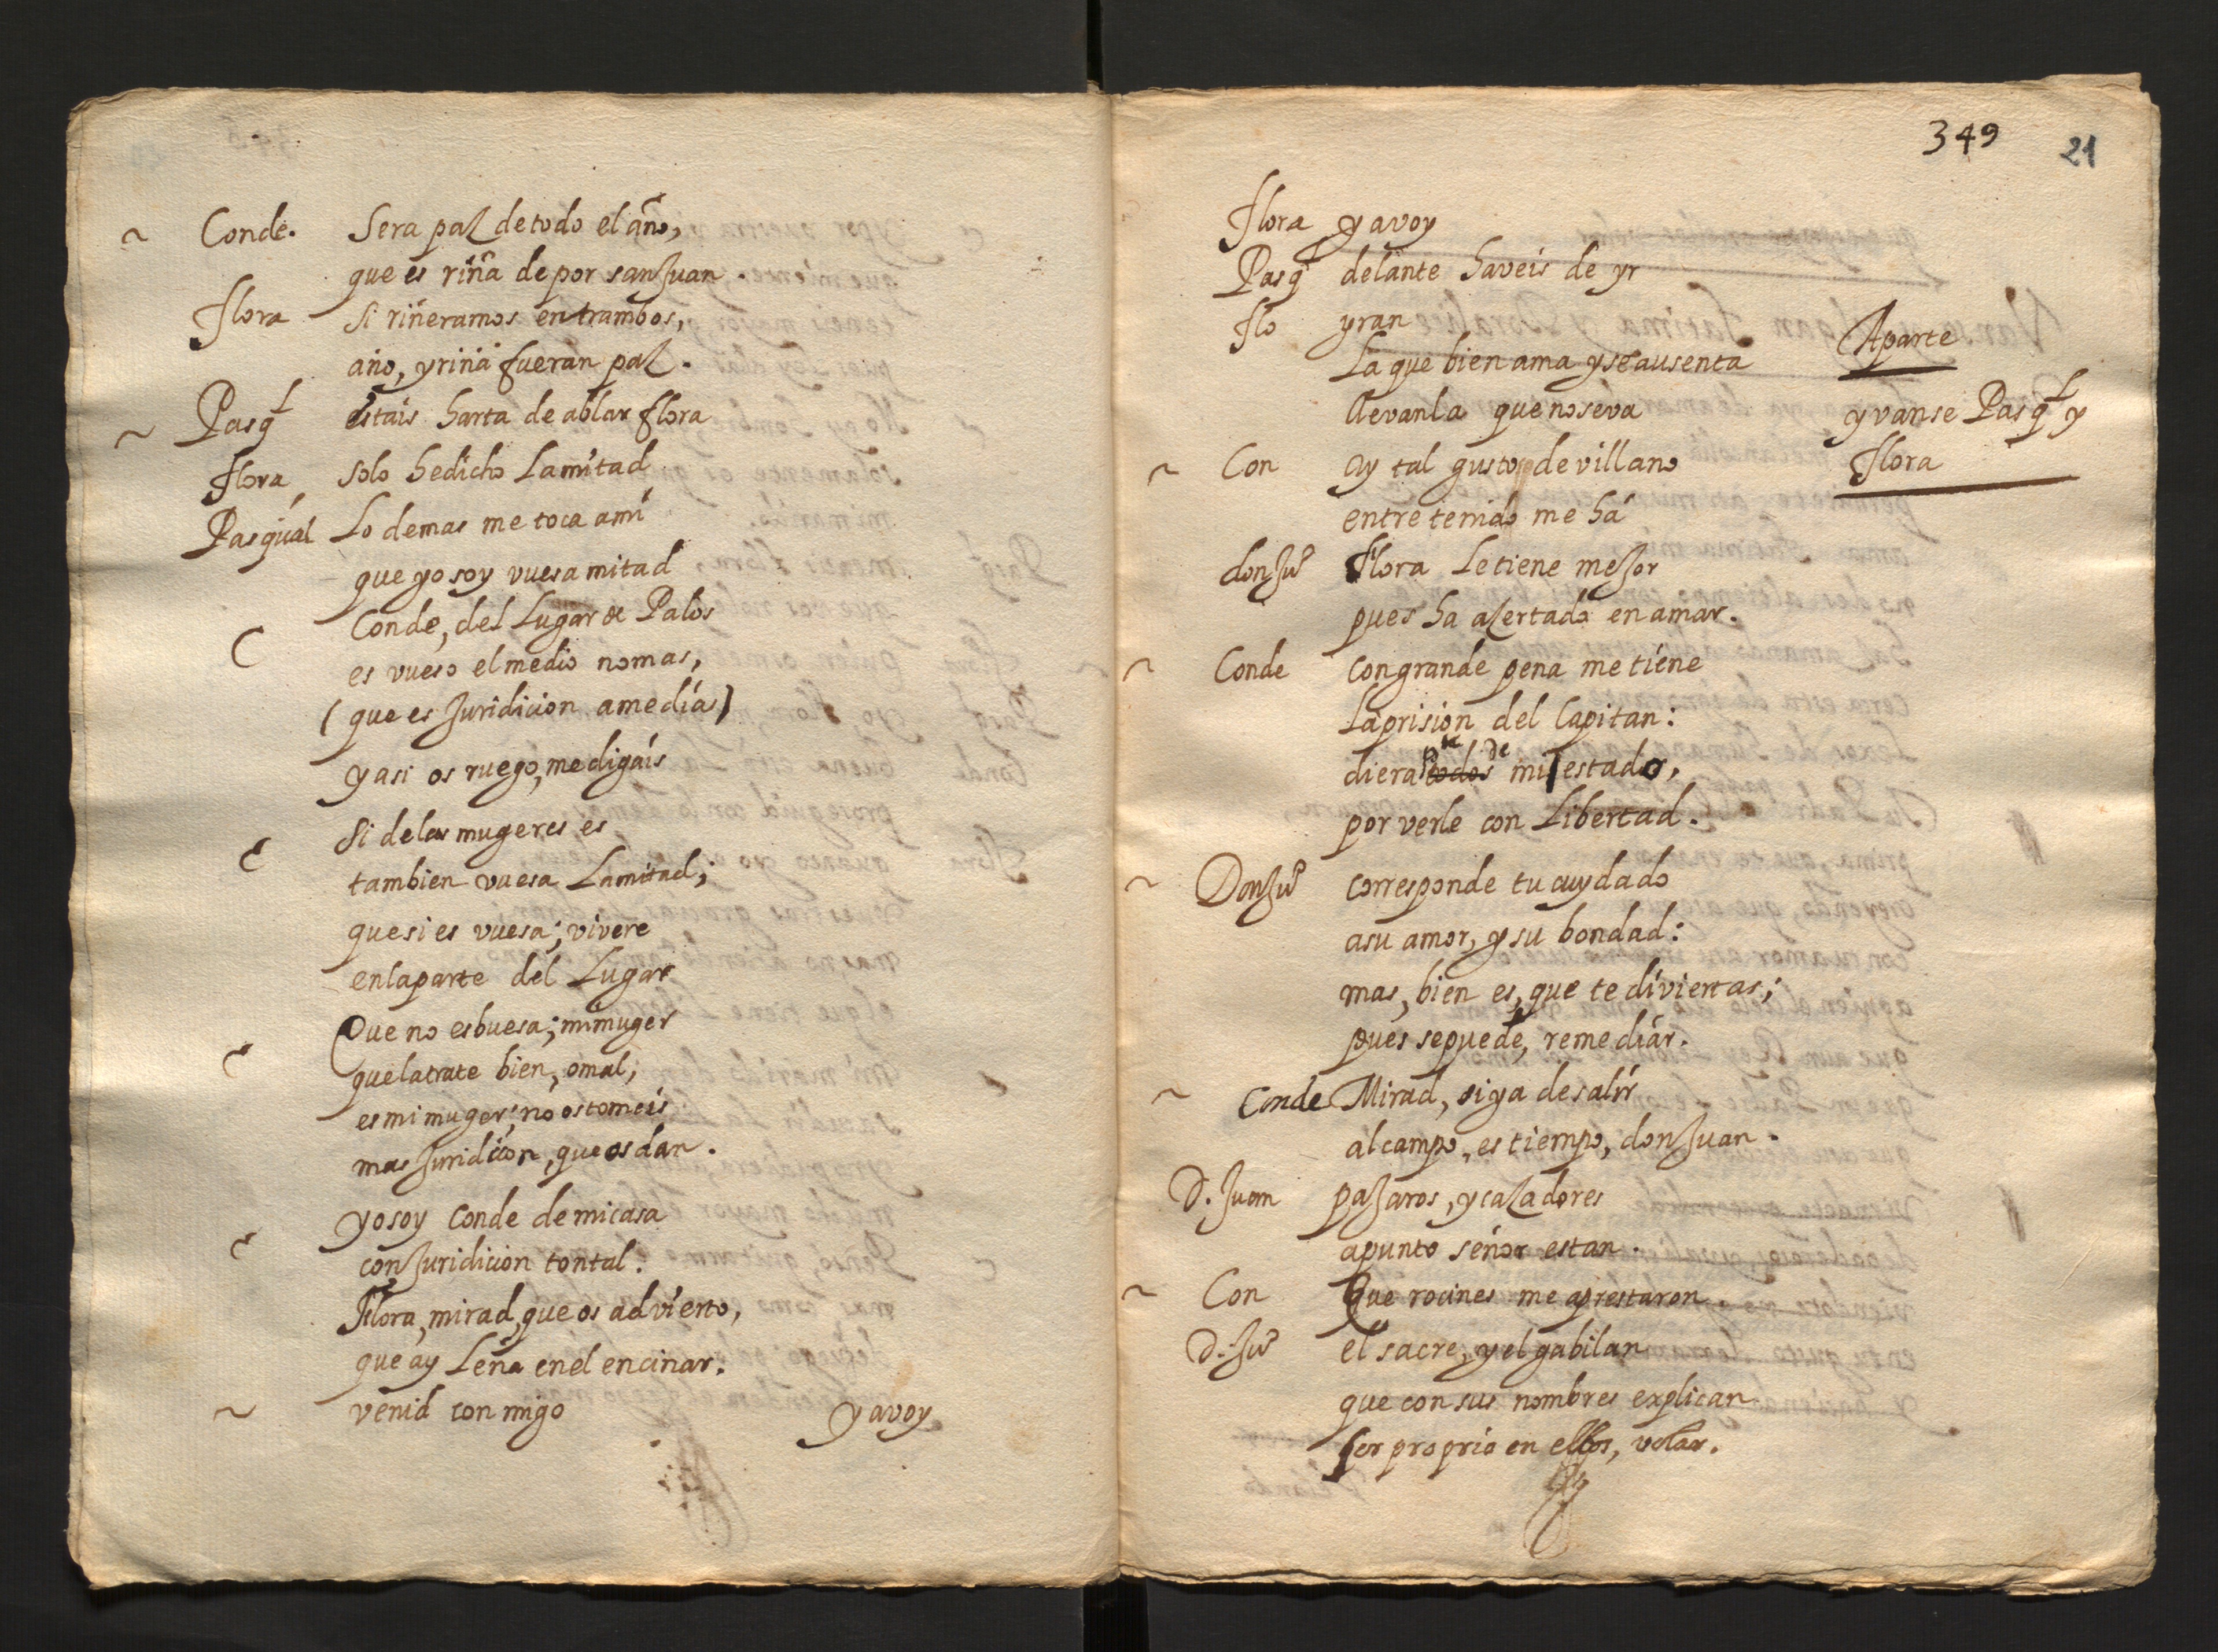 Conde. Sera paz de todo el año,
que es riña de por san Juan.
Flora Si riñeramos entrambos,
año, y riña fueran paz.
Pasql estais harta de ablar flora
Flora solo he dicho La mitad
Pasqual Lo demas me toca a mi
que yo soy vuesa mitad
Conde, del Lugar de Palos
es vueso el medio no mas,
(que es Juridicion a medias)
y asi os ruego, me digais
Si de las mugeres es
tambien vuesa La mitad;
que si es vuesa; vivere
en la parte del Lugar
Que no es buesa; mi muger
que la trate bien, o mal,
es mi muger; no os tomeis
mas Juridicion, que os dan.
yo soy Conde de mi casa
con Juridicion tontal.
Flora, mirad, que os advierto,
que ay Leña en el encinar.
venid con migo yavoy
349 21
Flora yavoy
Pasql delante haveis de yr
Flo yran Aparte
La que bien ama y se ausenta
llevanla que no se va y vanse Pasql y
Con ay tal gusto de villano Flora
entretenido me há
don Jun Flora Le tiene meJor
pues ha azertado en amar.
Conde con grande pena me tiene
La prision del Capitan:
diera todos mi estado, pte de
por verle con Libertad.
Don Jun corresponde tu cuydado
a su amor, y su bondad:
mas, bien es, que te diviertas;
pues se puede, remediar.
Conde Mirad, si ya de salir
al campo, es tiempo, don Juan.
D. Juan paJaros, y cazadores
a punto señor estan.
Con Que rocines me aprestaron.
D. Jun el sacre, y el gabilan
que con sus nombres explican
ser proprio en ellos, volar.